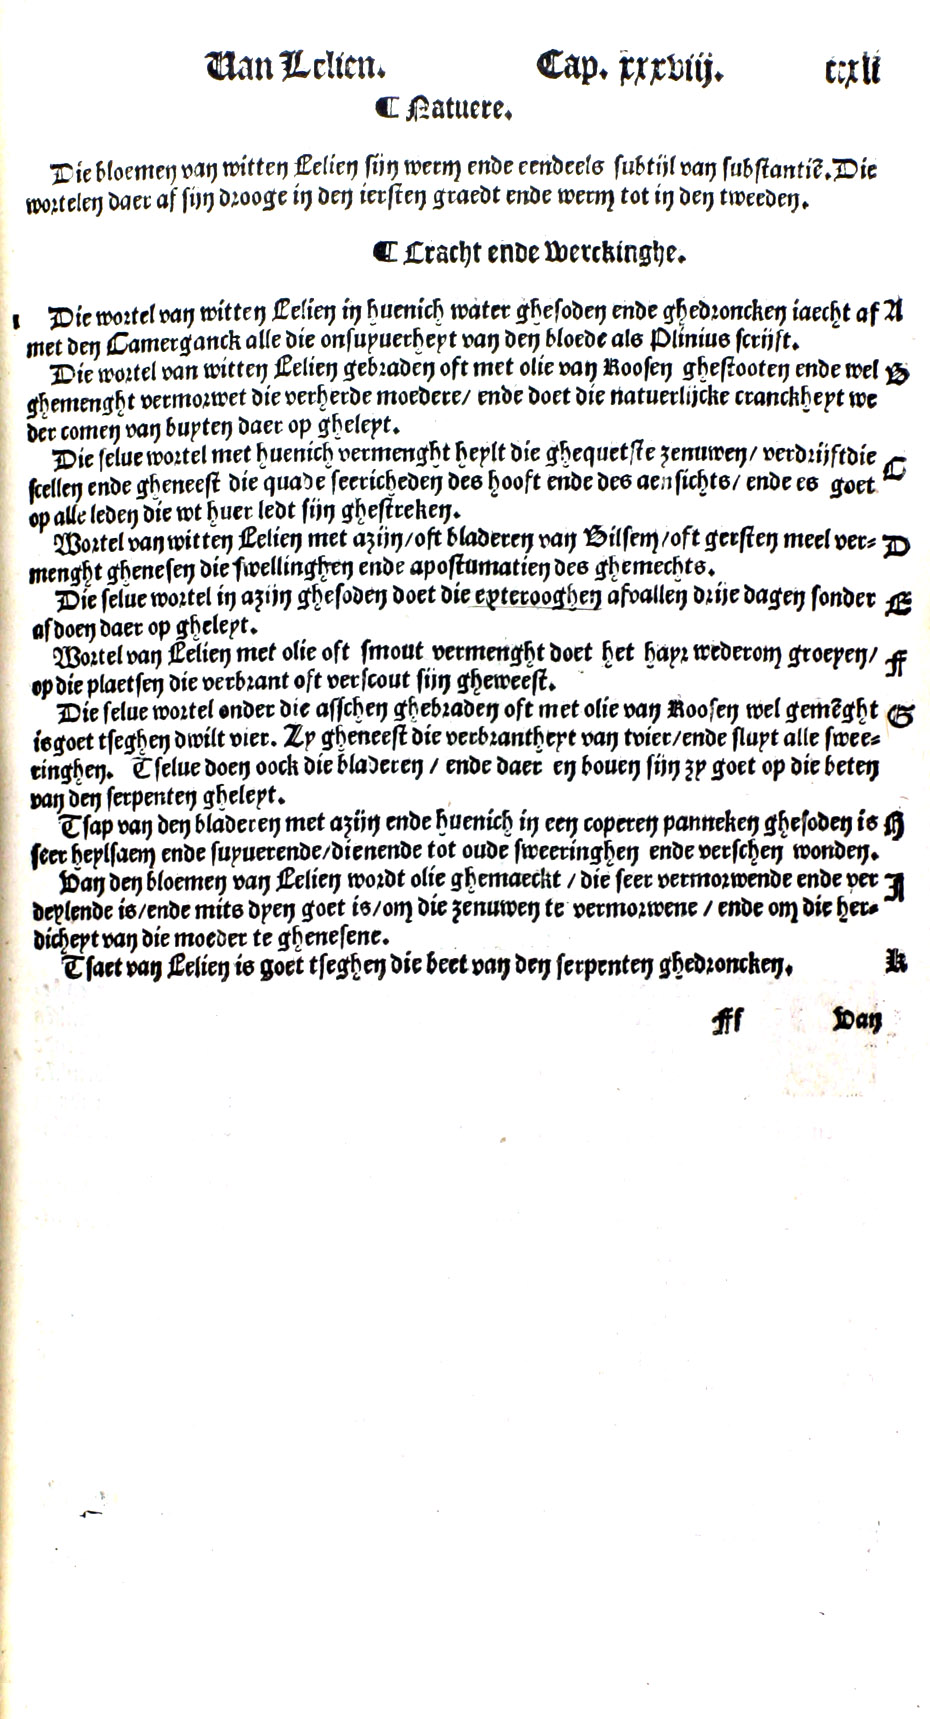 Van Lelien. Cap. xxxviij. ccxli
¶ Natuere.
Die bloemen van witten Lelien sijn werm ende eendeels subtijl van substantiẽ. Die
wortelen daer af sijn drooge in den iersten graedt ende werm tot in den tweeden.
¶ Cracht ende Werckinghe.
1 Die wortel van witten Lelien in huenich water ghesoden ende ghedroncken iaecht af A
met den Camerganck alle die onsuyuerheyt van den bloede als Plinius scrijft.
Die wortel van witten Lelien gebraden oft met olie van Roosen ghestooten ende wel B
ghemenght vermorwet die verherde moedere/ ende doet die natuerlijcke cranckheyt we
der comen van buyten daer op gheleyt.
Die selue wortel met huenich vermenght heylt die ghequetste zenuwen/ verdrijftdie C
scellen ende gheneest die quade seericheden des hooft ende des aensichts/ ende es goet
op alle leden die wt huer ledt sijn ghestreken.
Wortel van witten Lelien met azijn/oft bladeren van Bilsem/oft gersten meel ver= D
menght ghenesen die swellinghen ende apostumatien des ghemechts.
Die selue wortel in azijn ghesoden doet die exterooghen afvallen drije dagen sonder E
af doen daer op gheleyt.
Wortel van Lelien met olie oft smout vermenght doet het hayr wederom groeyen/ F
op die plaetsen die verbrant oft verscout sijn gheweest.
Die selue wortel onder die asschen ghebraden oft met olie van Roosen wel gemẽght G
is goet tseghen dwilt vier. Zy gheneest die verbrantheyt van tvier/ende sluyt alle swee=
ringhen. Tselue doen oock die bladeren / ende daer en bouen sijn zy goet op die beten
van den serpenten gheleyt.
Tsap van den bladeren met azijn ende huenich in een coperen panneken ghesoden is H
seer heylsaem ende suyuerende/dienende tot oude sweeringhen ende verschen wonden.
Van den bloemen van Lelien wordt olie ghemaeckt / die seer vermorwende ende ver I
deylende is/ende mits dyen goet is/om die zenuwen te vermorwene / ende om die her=
dicheyt van die moeder te ghenesene.
Tsaet van Lelien is goet tseghen die beet van den serpenten ghedroncken. K
Ff Van